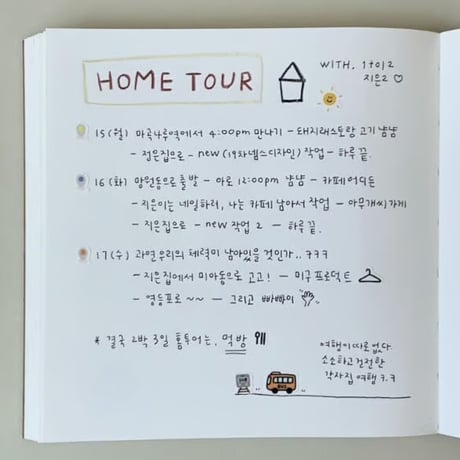 HOME TOUR
WITH. 
지은2 ♡
15(월) 마곡나루역에서 4:00pm 만나기 - 돼지래스토랑 고기 냠냠
- 지은집으로 - new (19차넵스디자인) 작업 - 하루 끝.
16(화) 망원동으로 출발 - 아로 12:00pm 냠냠 - 카페 어디든
- 지은이는 네일하러, 나는 카페 남아서 작업 - 아무개씨 가게
- 지은집으로 - new 작업 2 - 하루 끝.
17(수) 과연 우리의 체력이 남아있을 것인가.. ㅋㅋㅋ
- 지은집에서 미아동으로 고고! - 미구프로덕트
- 영등포로 ~~ - 그리고 빠빠이
* 결국 2박 3일 홈투어는, 먹방
여행이 따로 없다.
소소하고 건전한
각자집 여행 ㅋ.ㅋ
BUS